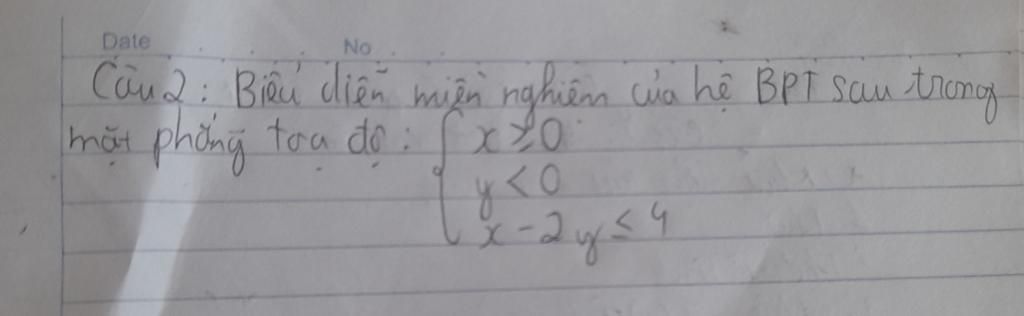 Date No
Câu 2: Biểu diễn miền nghiệm của hệ BPT sau trong
mặt phẳng tọa độ: { x ≥ 0
y < 0
x - 2y ≤ 4